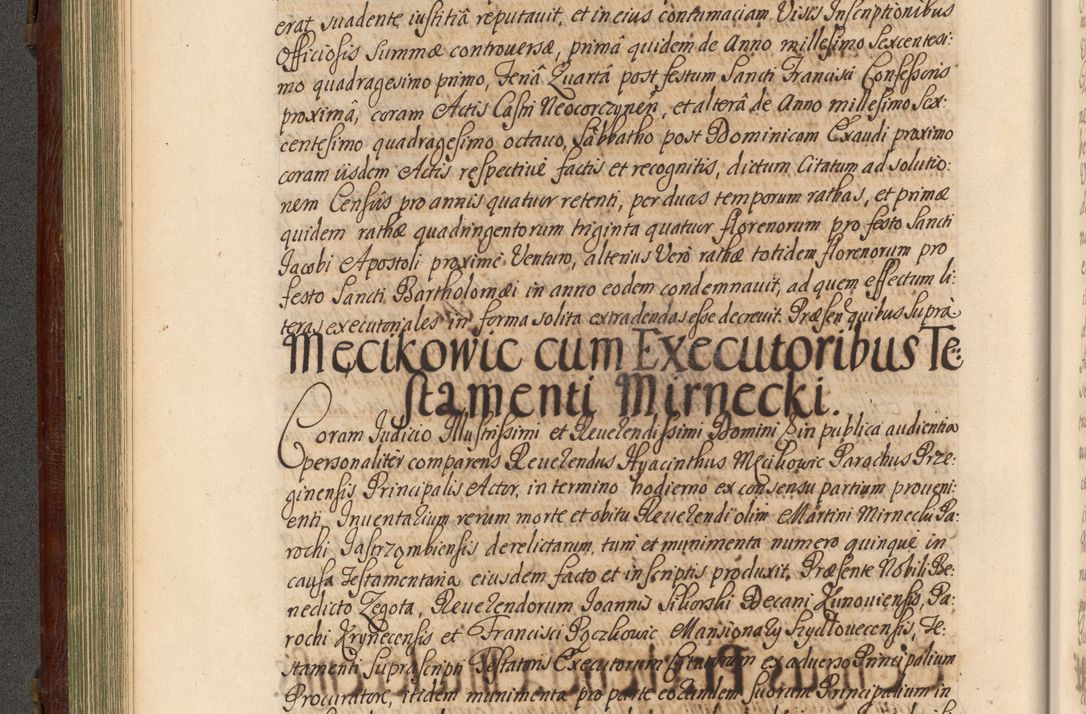 erat, suadente iustitiâ reputauit, et in eius contumaciam Visis Inscriptionibus
Officiosis Summæ controuersæ, primâ quidem de Anno millesimo Sexcentesi:
mo quadragesimo primo, Feriâ Quartâ post festum Sancti Francisci Confessoris
proximâ, coram Actis Castri Neocorczynen, et alterâ de Anno millesimo Sex:
centesimo quadragesimo octauo, Sabbatho post Dominicam Exaudi proximo
coram iisdem Actis respectiuè factis et recognitis, dictum Citatum ad solutio:
nem Censûs pro annis quatuor retenti, per duas temporum rathas, et primæ
quidem rathæ quadringentorum triginta quatuor florenorum pro festo Sancti
Jacobi Apostoli proximè Venturo, alterius Verò rathæ totidem florenorum pro
festo Sancti Bartholomæi in anno eodem condemnauit, ad quem effectum li:
teras executoriales in forma solita extradendas esse decreuit. Præsen quibus Suprà
Męcikowic cum Executoribus Te:
stamenti Mirnecki.
Coram Judicio Illustrissimi et Reuerendissimi Domini in publica audientia
personaliter comparens Reuerendus Hyacinthus Męcikowic Parochus Prze:
ginensis Principalis Actor, in termino hodierno ex consensu partium proueni:
enti, Inuentarium rerum morte et obitu Reuerendi olim Martini Mirnecki Pa:
rochi Jastrzombiensis derelictarum, tum et munimenta numero quinque in
causa Testamentaria eiusdem facto et in scriptis produxit. Præsente Nobili Be:
nedicto Zegota, Reuerendorum Joannis Sikorski Decani Kunouiensis, Pa:
rochi Krynecensis et Francisci Pączkowic Mansionarij Szydlouecensis, Te:
stamenti Suprascripti Testatoris Executorum Citatorum ex aduerso Principalium
Procuratore, itidem munimenta pro parte eorundem suorum Principalium in